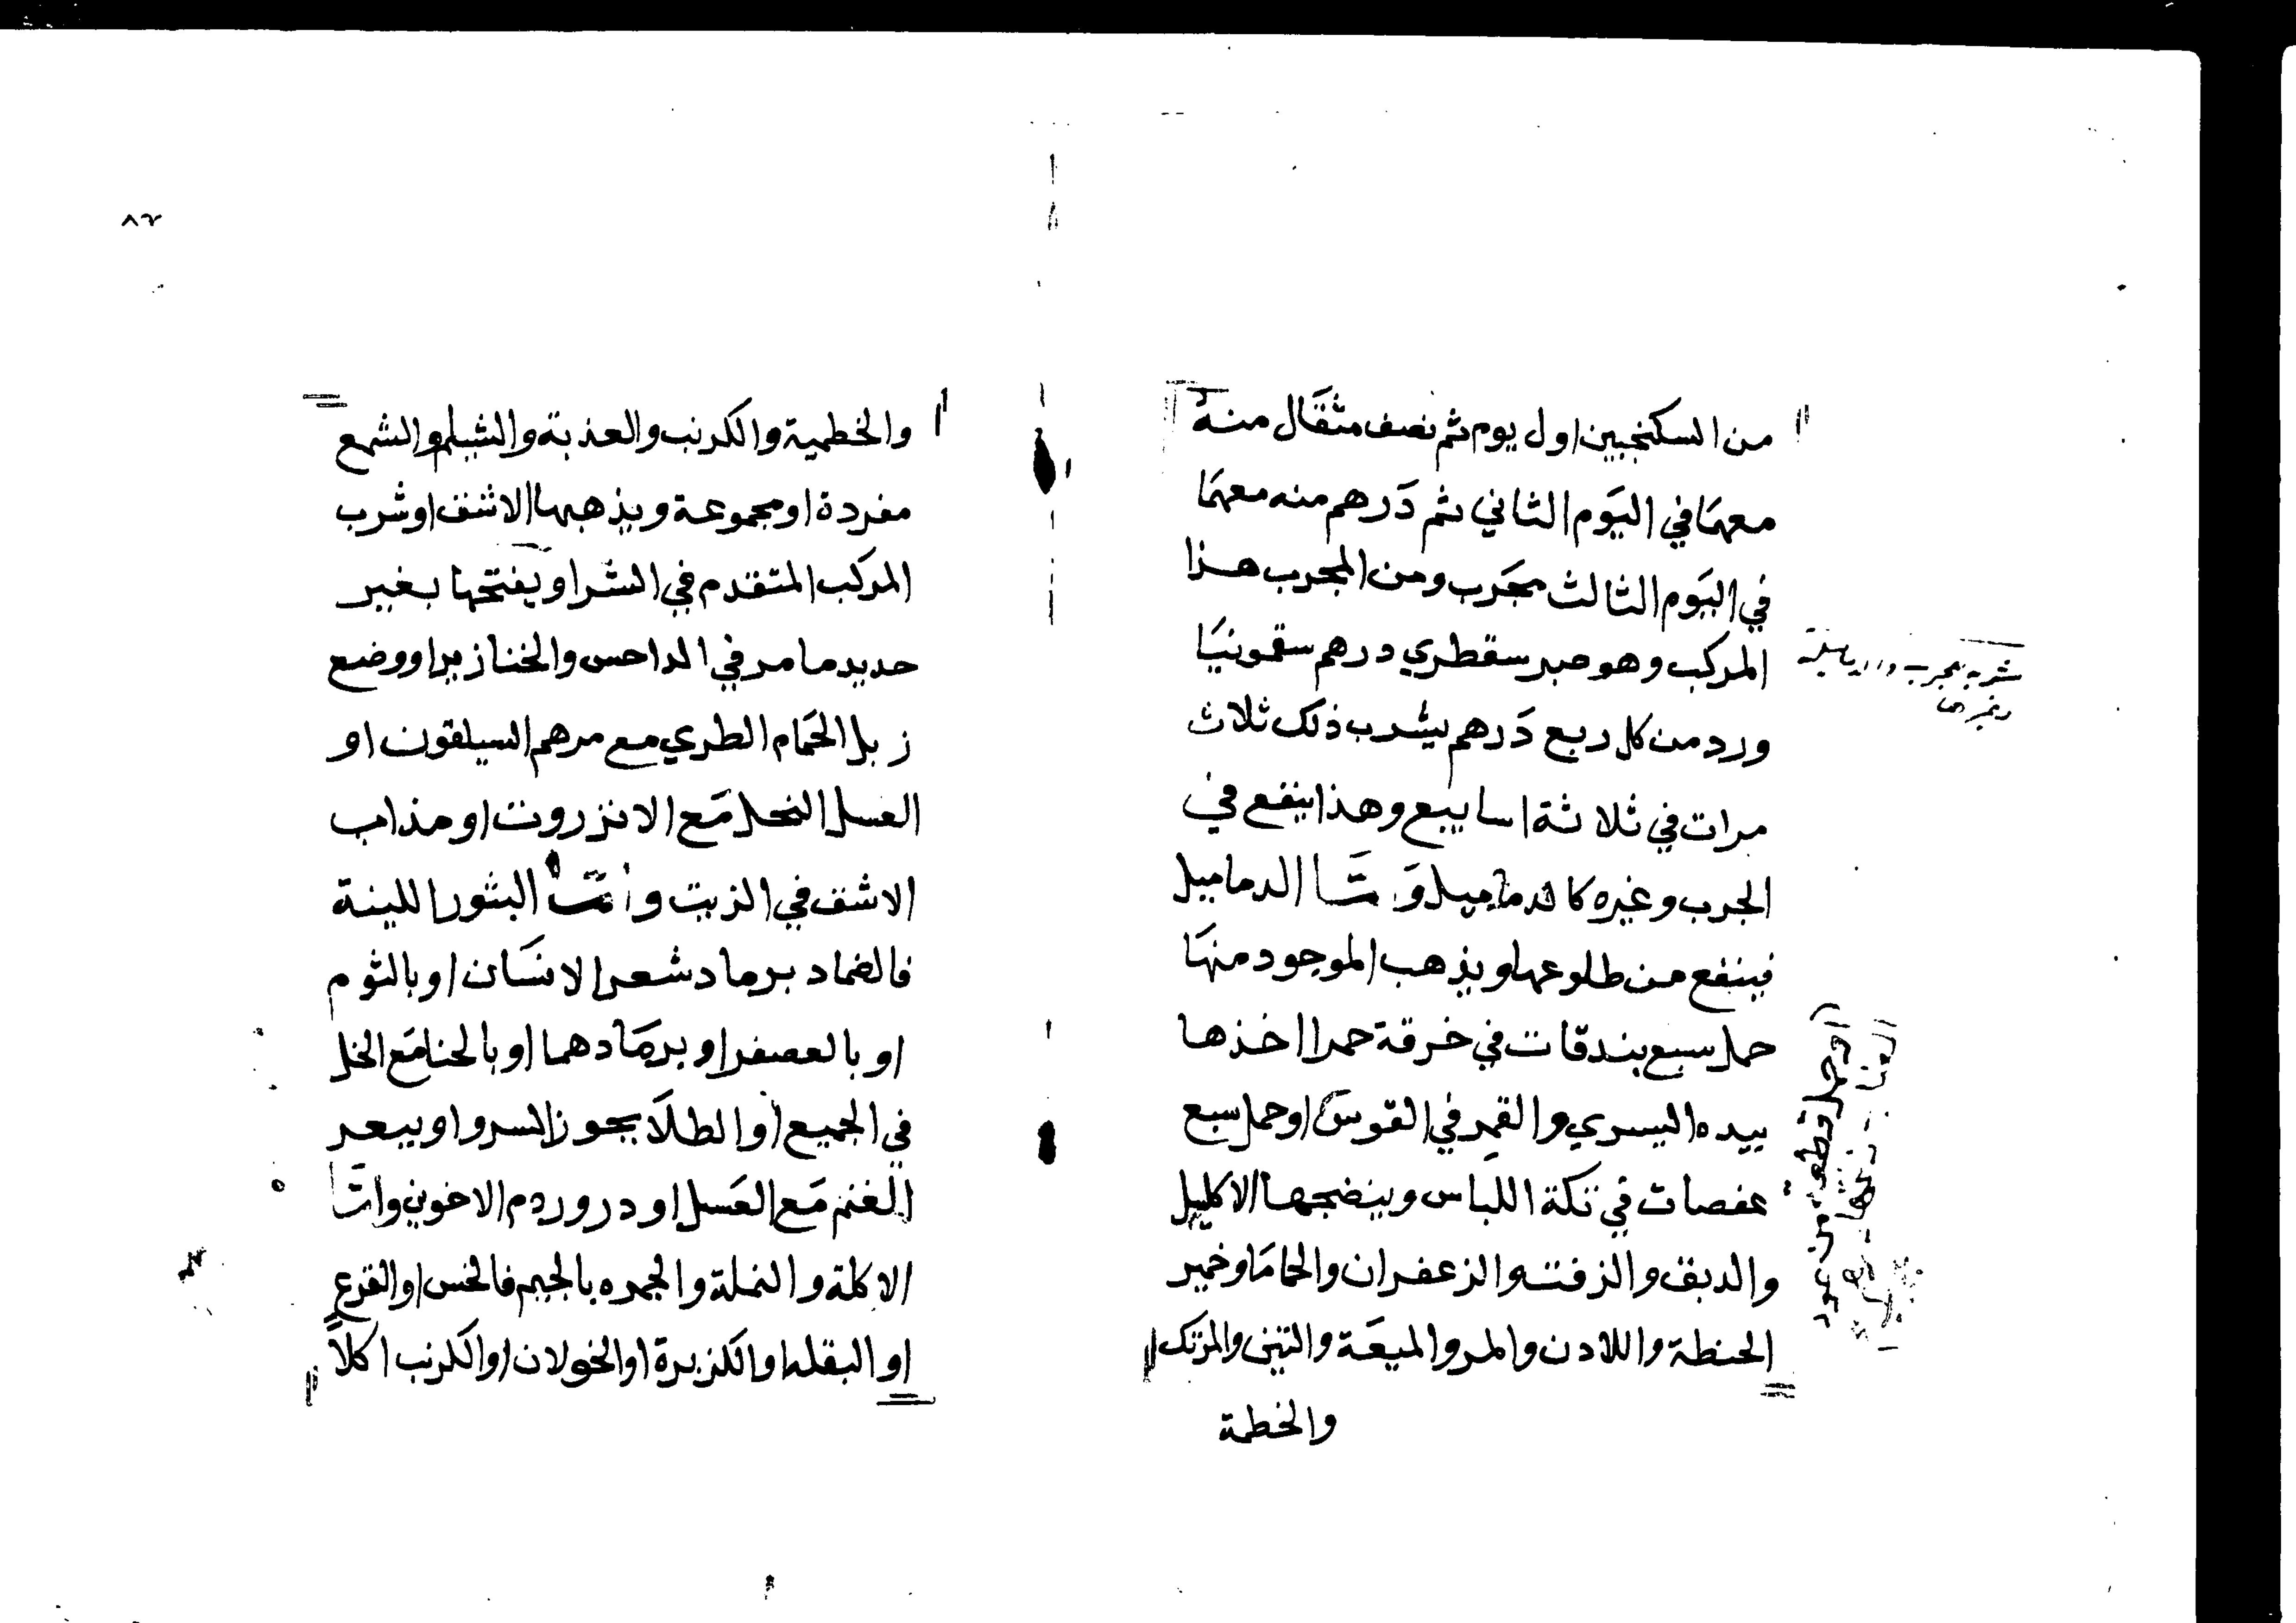 من السكنجبين اول يوم ثم نصف مثقال منه
معهما في اليوم الثاني ثم درهم منه معهما
في اليوم الثالث مجرب ومن المجرب هذا
المركب وهو صبر سقطري درهم سقمونيا
ورد من كل ربع درهم يشرب ذلك ثلاث
مرات في ثلاثة اسابيع وهذا ينفع في
الجرب وغيره كالدماميل وامّا الدماميل
فينفع من طلوعها ويذهب الموجود منها
حمل سبع بندقات في خرقة حمرا اخذها
بيده اليسري والقمر في القوس اوحمل سبع
عفصات في تكة اللباس وينضجها الاكليل
والدبق والزفت والزعفران والحاما وخمير
الحنطة واللادن والمر والميعة والتين والمرتك
والخطمة
٨٢
والخطمية والكرنب والعذبة والشيلم والشمع
مفردة اومجموعة ويذهبها الاشنف اوشرب
المركب المتقدم في الشرا ويفتحها بغير
حديد ما مر في الداحس والخنازير اووضع
زبل الحمام الطري مع مرهم السيلقون او
العسل النحل مع الانزروت اومذاب
الاشف في الزيت وامّا البثور اللينة
فالضماد برماد شعر الانسان اوبالثوم
اوبالعصفر اوبرمادهما اوبالحنا مع الخل
في الجميع اوالطلا بجوز السرو اوببعر
الغنم مع العسل اودرور دم الاخوين وامّا
الاكلة والنملة والجمره بالجيم فالخس اوالقرع
اوالبقله اوالكزبرة اوالخولان اوالكرنب اكلاً